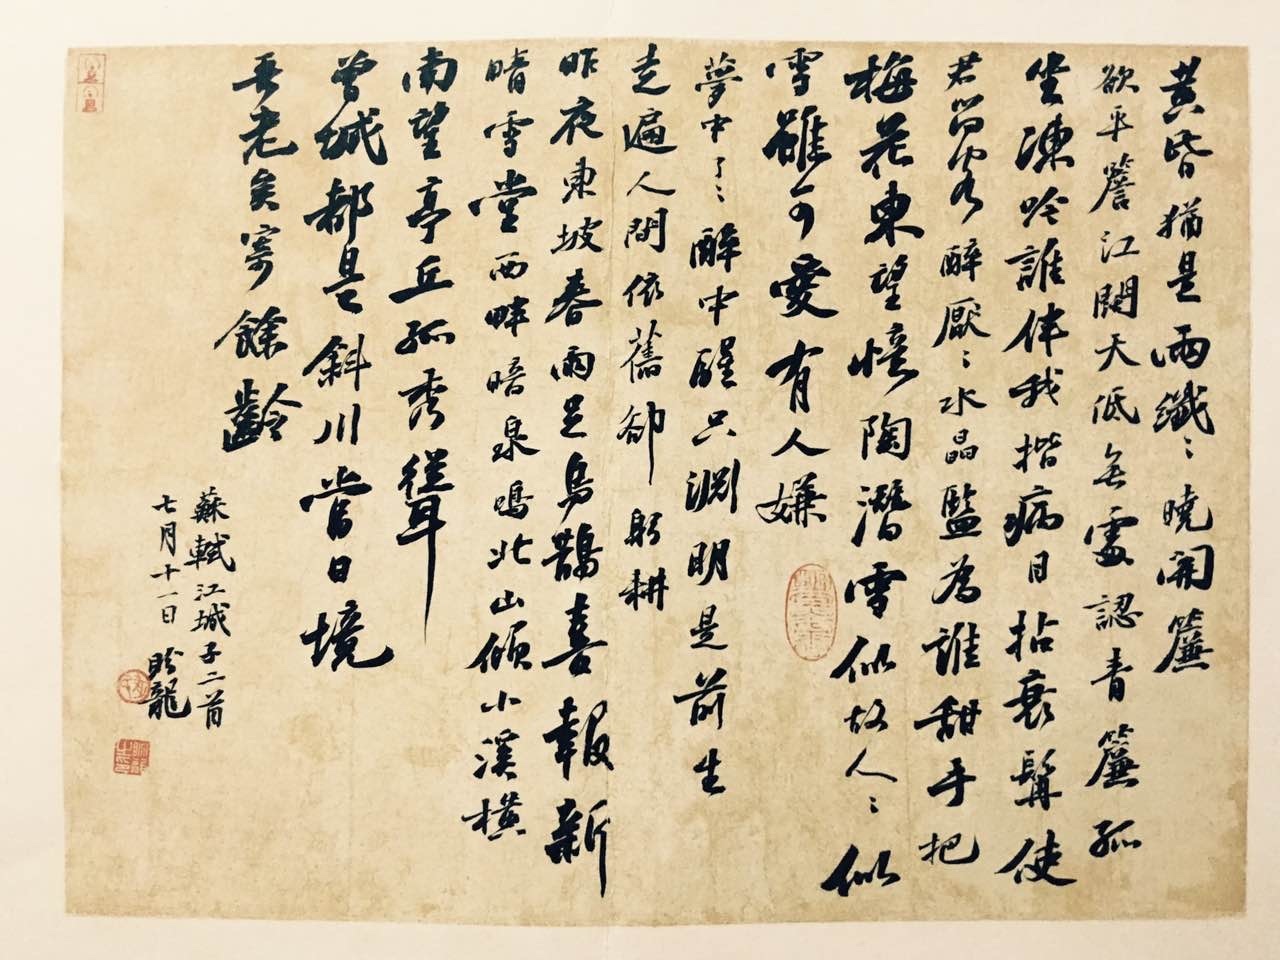 黃昏猶是雨纖〻曉開簾
欲平簷江闊天低無處認青簾孤
坐凍吟誰伴我揩病目拈衰髯使
君留客醉厭〻水晶監為誰甜手把
梅花東望憶陶潛雪似故人〻似
雪雖可愛有人嫌
夢中了〻醉中醒只淵明是前生
走遍人間依舊卻躬耕
昨夜東坡春雨足烏鵲喜報新
晴雪堂西畔暗泉鳴北山傾小溪橫
南望亭丘孤秀聳
曾城都是斜川當日境
吾老矣寄餘齡
蘇軾江城子二首
七月十一日 龍